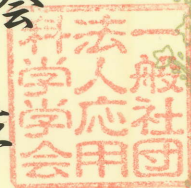 一般社団
法人応用
科学学会
会